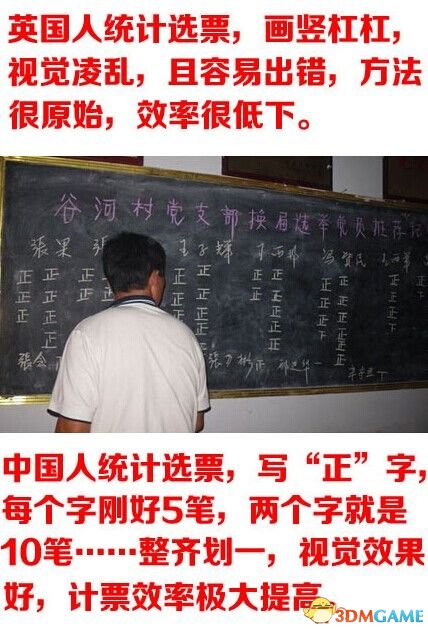 英国人统计选票，画竖杠杠，
视觉凌乱，且容易出错，方法
很原始，效率很低下。
谷河村党支部换届选举党员推荐
張果 張 王子輝
正 正 正 正 正 正
正 正 正 正 正 正
正 正 正 正 正 正
正 正 正 正 正
張 正 一
中国人统计选票，写“正”字，
每个字刚好5笔，两个字就是
10笔……整齐划一，视觉效果
好，计票效率极大提高。
3DMGAME